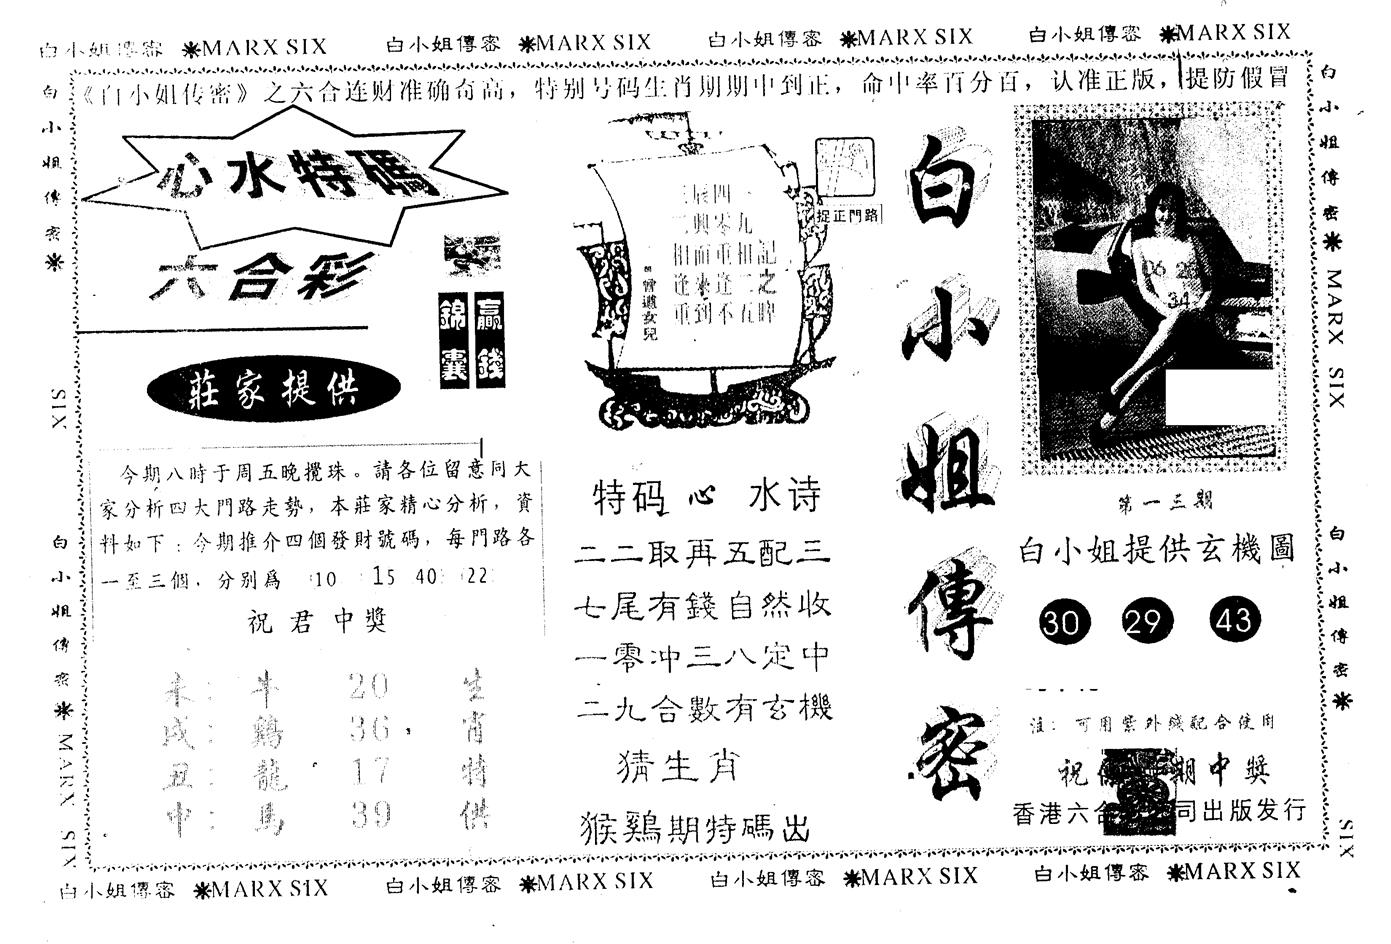 白小姐傳密 ✷MARX SIX 白小姐傳密 ✷MARX SIX 白小姐傳密 ✷MARX SIX 白小姐傳密 ✷MARX SIX
《白小姐传密》之六合连财准确奇高，特别号码生肖期期中到正，命中率百分百，认准正版，提防假冒
白小姐傳密✷
SIX
白小姐傳密✷MARX SIX
心水特碼
六合彩
錦囊
贏錢
莊家提供
今期八時于周五晚攪珠。請各位留意同大
家分析四大門路走勢，本莊家精心分析，資
料如下：今期推介四個發財號碼，每門路各
一至三個，分别爲 10 15 40 22
祝君中獎
未：牛 20 生
戌：鷄 36，肖
丑：龍 17 特
申：馬 39 供
捉正門路
一九記之睥
四零相二五
辰興面來到
相逢重
曾道女兒
特码心水诗
二二取再五配三
七尾有錢自然收
一零冲三八定中
二九合數有玄機
猜生肖
猴鷄期特碼出
白小姐傳密
06 28
34
第一三期
白小姐提供玄機圖
30 29 43
注：可用紫外线配合使用
祝 期中獎
香港六合 司出版发行
白小姐傳密✷MARX SIX
白小姐傳密✷
SIX
白小姐傳密 ✷MARX SIX 白小姐傳密 ✷MARX SIX 白小姐傳密 ✷MARX SIX 白小姐傳密 ✷MARX SIX